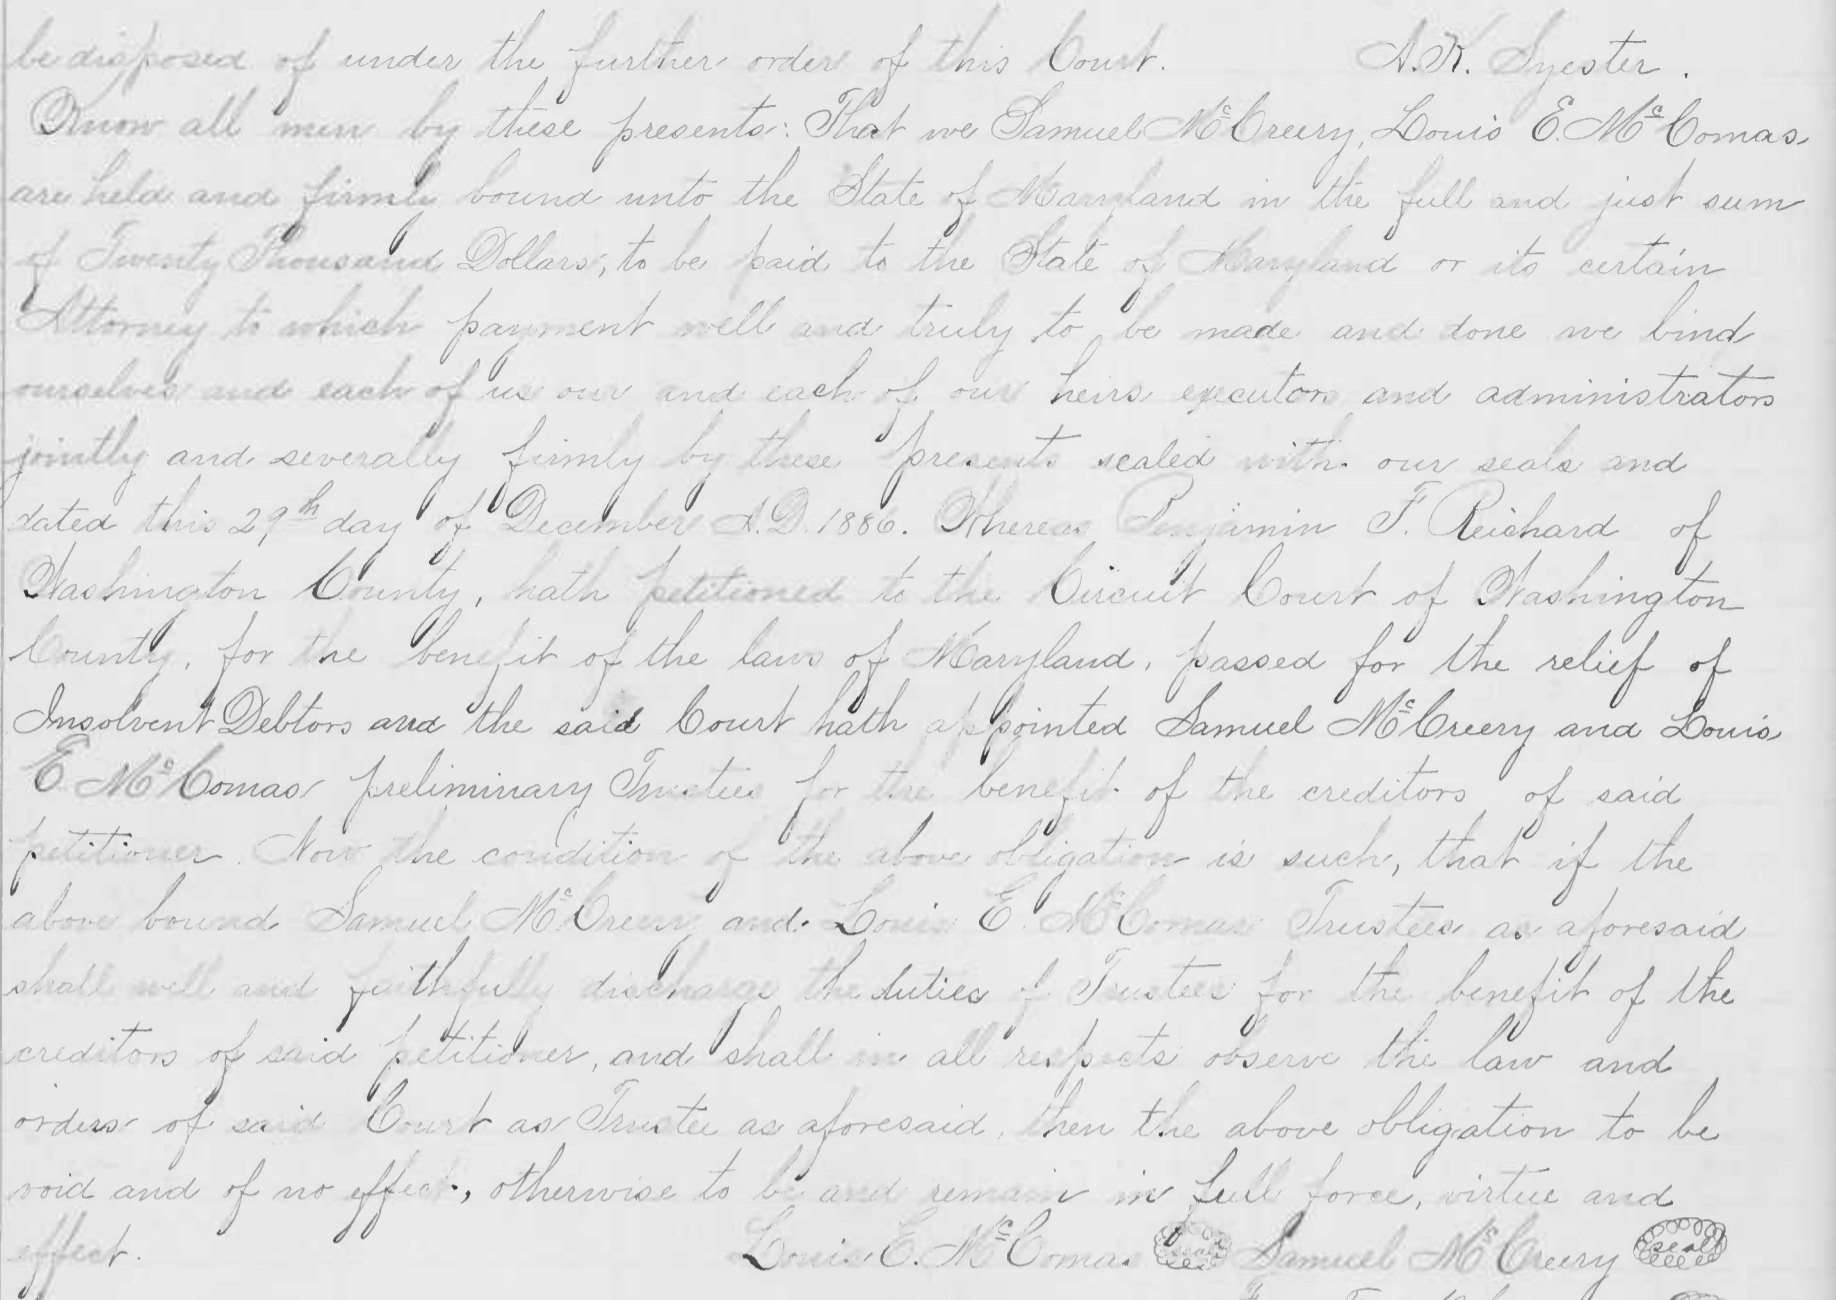 be disposed of under the further order of this Court. A. K. Syester.
Know all men by these presents: That we Samuel McCreery, Louis E. McComas
are held and firmly bound unto the State of Maryland in the full and just sum
of Twenty Thousand Dollars, to be paid to the State of Maryland or its certain
Attorney to which payment well and truly to be made and done we bind
ourselves and each of us our and each of our heirs executors and administrators
jointly and severally firmly by these presents sealed with our seals and
dated this 29th day of December A.D. 1886. Whereas Benjamin F. Reichard of
Washington County, hath petitioned to the Circuit Court of Washington
County, for the benefit of the laws of Maryland, passed for the relief of
Insolvent Debtors and the said Court hath appointed Samuel McCreery and Louis
E. McComas preliminary Trustees for the benefit of the creditors of said
petitioner. Now the condition of the above obligation is such, that if the
above bound Samuel McCreery and Louis E. McComas Trustees as aforesaid
shall well and faithfully discharge the duties of Trustees for the benefit of the
creditors of said petitioner, and shall in all respects observe the law and
orders of said Court as Trustee as aforesaid, then the above obligation to be
void and of no effect, otherwise to be and remain in full force, virtue and
effect. Louis E. McComas seal Samuel McCreery seal